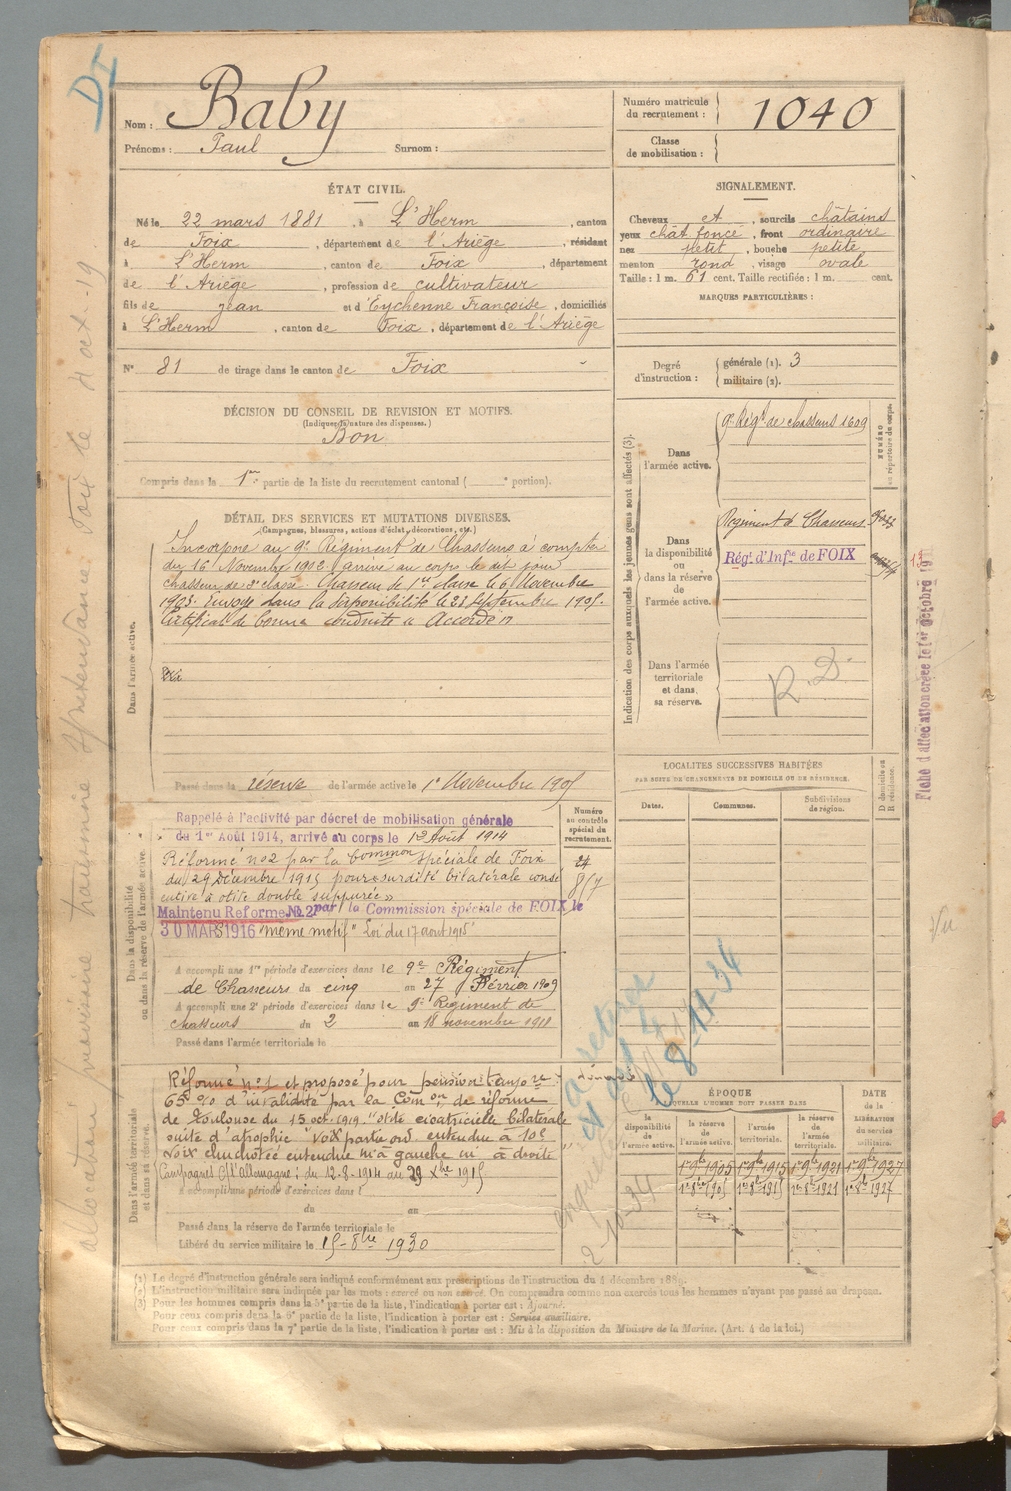 DI
Nom : Baby
Prénoms : Paul Surnom :
Numéro matricule du recrutement : 1040
Classe de mobilisation :
ÉTAT CIVIL.
Né le 22 mars 1881, à L'Herm, canton
de Foix, département de l'Ariège, résidant
à L'Herm, canton de Foix, département
de l'Ariège, profession de cultivateur
fils de Jean et d'Eychenne Françoise, domiciliés
à L'Herm, canton de Foix, département de l'Ariège
N° 81 de tirage dans le canton de Foix
SIGNALEMENT.
Cheveux et, sourcils châtains
yeux chât. foncé, front ordinaire
nez petit, bouche petite
menton rond, visage ovale
Taille : 1 m. 61 cent. Taille rectifiée : 1 m. cent.
MARQUES PARTICULIÈRES :
Degré d'instruction : générale (1). 3
militaire (2).
DÉCISION DU CONSEIL DE REVISION ET MOTIFS.
(Indiquer la nature des dispenses.)
Bon
Compris dans la 1re partie de la liste du recrutement cantonal ( e portion).
DÉTAIL DES SERVICES ET MUTATIONS DIVERSES.
(Campagnes, blessures, actions d'éclat, décorations, etc.)
Dans l'armée active.
Incorporé au 9e Régiment de Chasseurs à compter
du 16 Novembre 1902. arrivé au corps le dit jour
chasseur de 2e classe. Chasseur de 1re classe le 6 Novembre
1903. Envoyé dans la disponibilité le 23 Septembre 1905.
Certificat de bonne conduite "Accordé"
Passé dans la réserve de l'armée active le 1er Novembre 1905
Indication des corps auxquels les jeunes gens sont affectés (3).
NUMÉRO au répertoire du corps.
Dans l'armée active.
9e Régt de chasseurs 1609
Dans la disponibilité ou dans la réserve de l'armée active.
Régiment de Chasseurs
Régt d'Infie de FOIX
Dans l'armée territoriale et dans sa réserve.
R. D.
Fiche d'affectation créée le 1er Octobre 19
13
Dans la disponibilité ou dans la réserve de l'armée active.
Numéro au contrôle spécial du recrutement.
24
8/7
Rappelé à l'activité par décret de mobilisation générale
du 1er Août 1914, arrivé au corps le 12 Août 1914
Réformé n°2 par la Common spéciale de Foix
du 29 Décembre 1915 pour « surdité bilatérale consé
cutive à otite double suppurée »
Maintenu Réformé N° 2 par la Commission spéciale de FOIX le
30 MARS 1916 "même motif" Loi du 17 août 1915
A accompli une 1re période d'exercices dans le 9e Régiment
de Chasseurs du cinq au 27 Février 1909
A accompli une 2e période d'exercices dans le 9e Régiment de
chasseurs du 2 au 18 novembre 1911
Passé dans l'armée territoriale le
LOCALITÉS SUCCESSIVES HABITÉES
PAR SUITE DE CHANGEMENTS DE DOMICILE OU DE RÉSIDENCE.
Dates. Communes. Subdivisions de région. D domicile ou R résidence.
Dans l'armée territoriale et dans sa réserve.
Réformé n°1 et proposé pour pension tempore
65 % d'invalidité par la Comon de réforme
de Toulouse du 15 oct. 1919 "otite cicatricielle bilatérale
suite d'atrophie" voix parlée ord. entendue à 10c
Voix chuchotée entendue ni à gauche ni à droite
Campagnes C/ l'Allemagne : du 12-8-1914 au 29 Xbre 1915
A accompli une période d'exercices dans l
du au
Passé dans la réserve de l'armée territoriale le
Libéré du service militaire le 15-8bre 1930
ÉPOQUE
A LAQUELLE L'HOMME DOIT PASSER DANS
la disponibilité de l'armée active. la réserve de l'armée active. l'armée territoriale. la réserve de l'armée territoriale.
DATE de la LIBÉRATION du service militaire.
1er 9bre 1905 1er 9bre 1915 1er 9bre 1921 1er 9bre 1927
1er 8bre 1905 1er 8bre 1915 1er 8bre 1921 1er 8bre 1927
le 8-11-34
2-10-34
Vu
(1) Le degré d'instruction générale sera indiqué conformément aux prescriptions de l'instruction du 4 décembre 1889.
(2) L'instruction militaire sera indiquée par les mots : exercé ou non exercé. On comprendra comme non exercés tous les hommes n'ayant pas passé au drapeau.
(3) Pour les hommes compris dans la 5e partie de la liste, l'indication à porter est : Ajourné.
Pour ceux compris dans la 6e partie de la liste, l'indication à porter est : Services auxiliaires.
Pour ceux compris dans la 7e partie de la liste, l'indication à porter est : Mis à la disposition du Ministre de la Marine. (Art. 4 de la loi.)